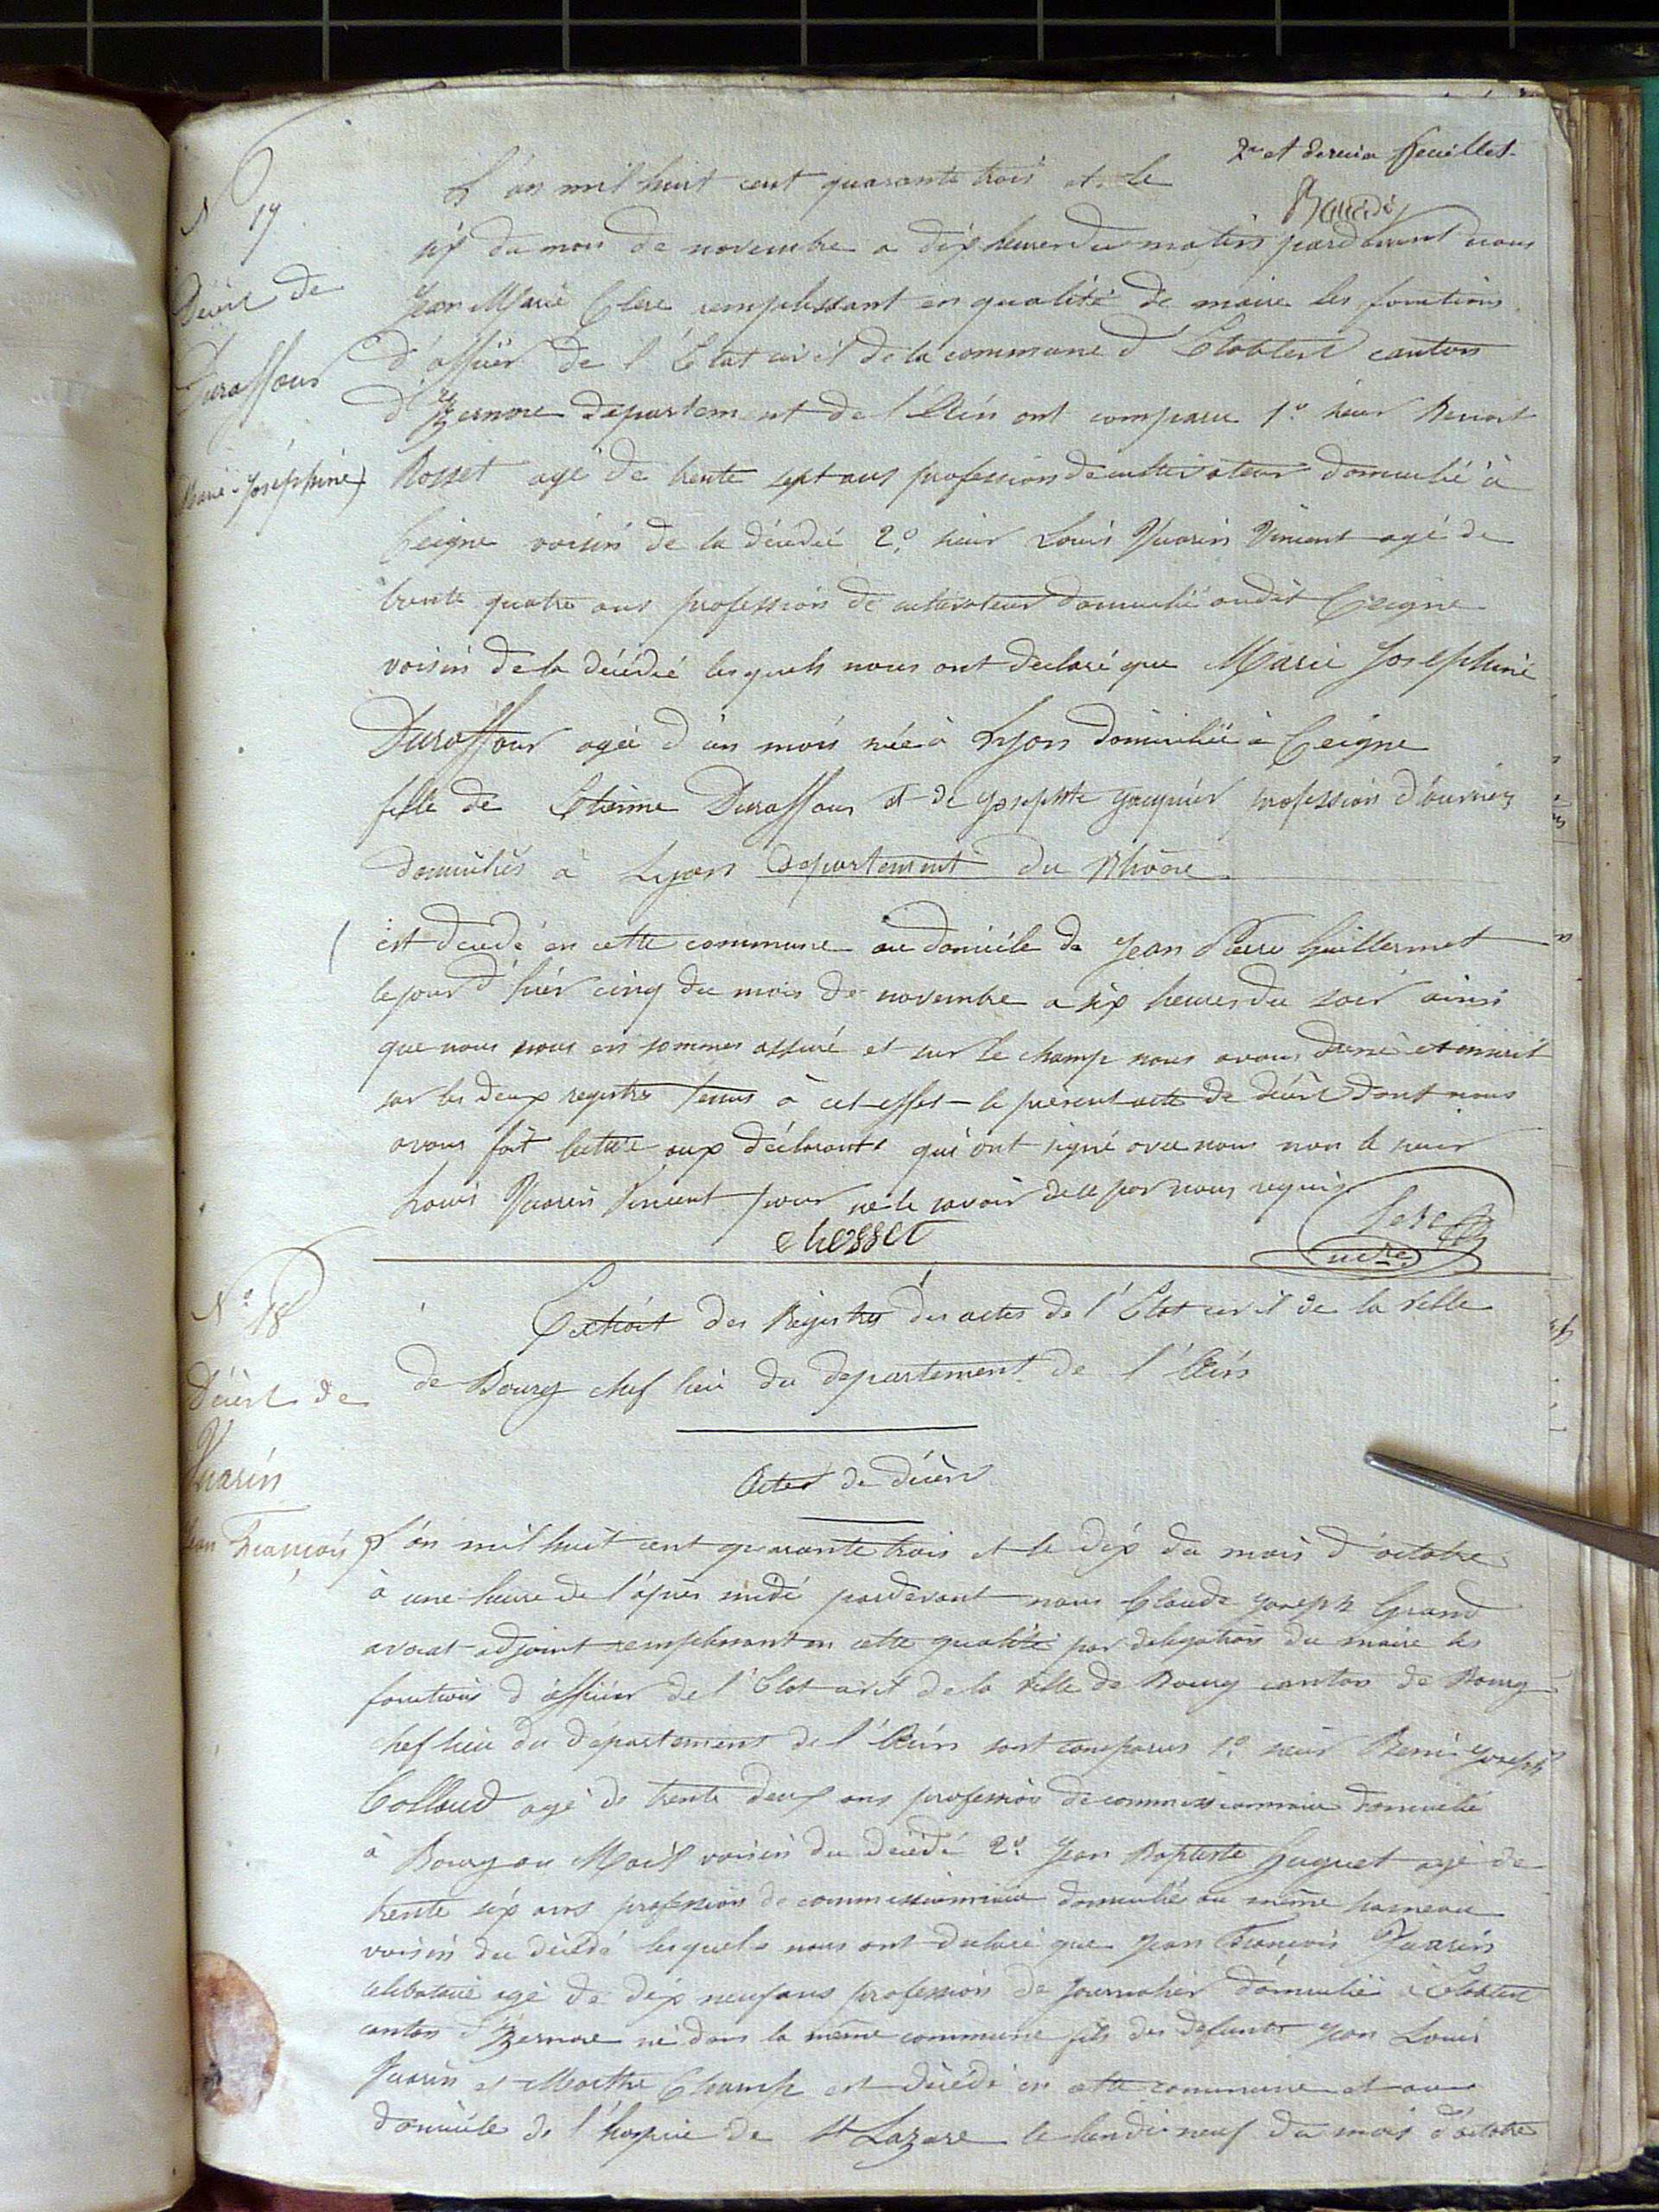 2e et dernier feuillet.
N° 17
Décès de
Duraffour
Marie-Joséphine
L'an mil huit cent quarante trois et le
six du mois de novembre a dix heures du matin pardevant nous
Jean Marie Clerc remplissant en qualité de maire les fonctions
d'officier de l'État civil de la commune d'Étables canton
d'Izernore département de l'Ain ont comparu 1° sieur Benoit
Rosset agé de trente sept ans profession de cultivateur domicilié à
Ceigne voisin de la décédée 2° sieur Louis Vuarin Vincent agé de
trente quatre ans profession de cultivateur domicilié audit Ceigne
voisin de la décédée lesquels nous ont déclaré que Marie Joséphine
Duraffour agée d'un mois née à Lyon domiciliée à Ceigne
fille de Etienne Duraffour et de Josephte Jaquier profession d'ouvriers
domiciliés à Lyon département du Rhône
est décédé en cette commune au domicile de Jean Pierre Guillermet
le jour d'hier cinq du mois de novembre a six heures du soir ainsi
que nous nous en sommes assuré et sur le champ nous avons dressé et inscrit
sur les deux registres tenus à cet effet le présent acte de décès dont nous
avons fait lecture aux déclarants qui ont signé avec nous non le sieur
Louis Vuarin Vincent pour ne le savoir de ce par nous requis
Clerc
maire
N° 18
Décès de
Vuarin
Jean François
Extrait des Registres des actes de l'État civil de la ville
de Bourg chef lieu du département de l'Ain
Actes de décès
L'an mil huit cent quarante trois et le dix du mois d'octobre
à une heure de l'après midi pardevant nous Claude Joseph Grand
avocat adjoint remplissant en cette qualité par délégation du maire les
fonctions d'officier de l'État civil de la ville de Bourg canton de Bourg
chef lieu du département de l'Ain sont comparus 1° sieur René Joseph
Collaud agé de trente deux ans profession de commissionnaire domicilié
à Bourg au Mail voisin du décédé 2° Jean Baptiste Huguet agé de
trente six ans profession de commissionnaire domicilié au même hameau
voisin du décédé lesquels nous ont déclaré que Jean François Vuarin
célibataire agé de dix neuf ans profession de journalier domicilié à Étables
canton d'Izernore né dans la même commune fils des défunts Jean Louis
Vuarin et Marthe Champ est décédé en cette commune et au
domicile de l'hospice de St Lazare le lundi neuf du mois d'octobre